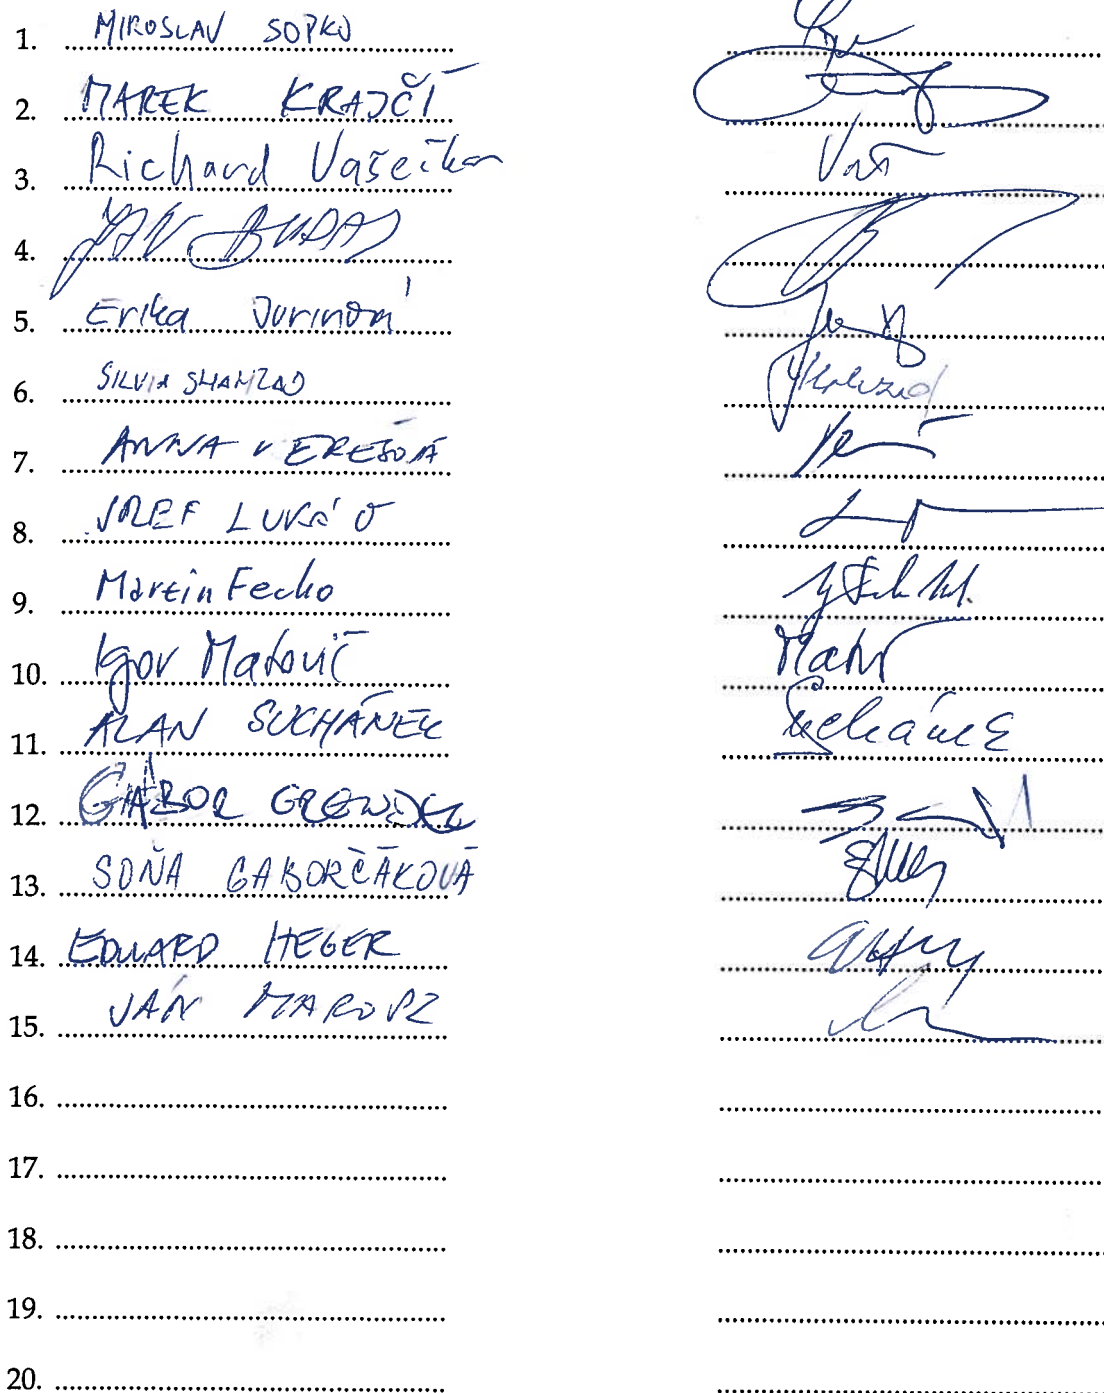 1. MIROSLAV SOPKO
2. MAREK KRAJČÍ
3. Richard Vašečka
4. JÁN BUDAJ
5. Erika Jurinová
6. SILVIA SHAHZAD
7. ANNA VEREŠOVÁ
8. JOZEF LUKÁČ
9. Martin Fecko
10. Igor Matovič Matov
11. ALAN SUCHÁNEK Suchánek
12. GÁBOR GRENDEL
13. SOŇA GABORČÁKOVÁ
14. EDUARD HEGER
15. JÁN MAROSZ
16.
17.
18.
19.
20.